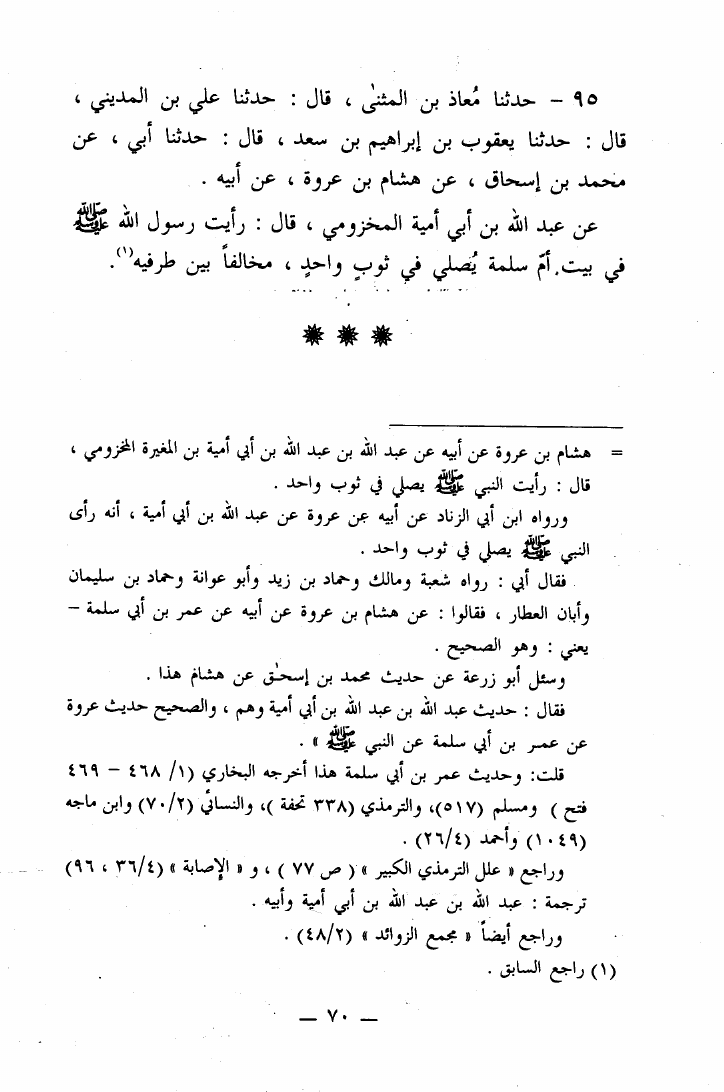 ٩٥ – حدثنا مُعاذ بن المثنىٰ ، قال : حدثنا علي بن المديني ،
قال : حدثنا يعقوب بن إبراهيم بن سعد ، قال : حدثنا أبي ، عن
محمد بن إسحاق ، عن هشام بن عروة ، عن أبيه .
عن عبد الله بن أبي أمية المخزومي ، قال : رأيت رسول الله ﷺ
في بيت أمّ سلمة يُصلي في ثوبٍ واحدٍ ، مخالفاً بين طرفيه(١).
= هشام بن عروة عن أبيه عن عبد الله بن عبد الله بن أبي أمية بن المغيرة المخزومي ،
قال : رأيت النبي ﷺ يصلي في ثوب واحد .
ورواه ابن أبي الزناد عن أبيه عن عروة عن عبد الله بن أبي أمية ، أنه رأى
النبي ﷺ يصلي في ثوب واحد .
فقال أبي : رواه شعبة ومالك وحماد بن زيد وأبو عوانة وحماد بن سليمان
وأبان العطار ، فقالوا : عن هشام بن عروة عن أبيه عن عمر بن أبي سلمة –
يعني : وهو الصحيح .
وسئل أبو زرعة عن حديث محمد بن إسحٰق عن هشام هذا .
فقال : حديث عبد الله بن عبد الله بن أبي أمية وهم ، والصحيح حديث عروة
عن عمر بن أبي سلمة عن النبي ﷺ » .
قلت: وحديث عمر بن أبي سلمة هذا أخرجه البخاري (١/ ٤٦٨ – ٤٦٩
فتح ) ومسلم (٥١٧)، والترمذي (٣٣٨ تحفة )، والنسائي (٧٠/٢) وابن ماجه
(١٠٤٩) وأحمد (٢٦/٤) .
وراجع « علل الترمذي الكبير » ( ص ٧٧ ) ، و « الإصابة » (٣٦/٤ ، ٩٦)
ترجمة : عبد الله بن عبد الله بن أبي أمية وأبيه .
وراجع أيضاً « مجمع الزوائد » (٤٨/٢) .
(١) راجع السابق .
– ٧٠ –